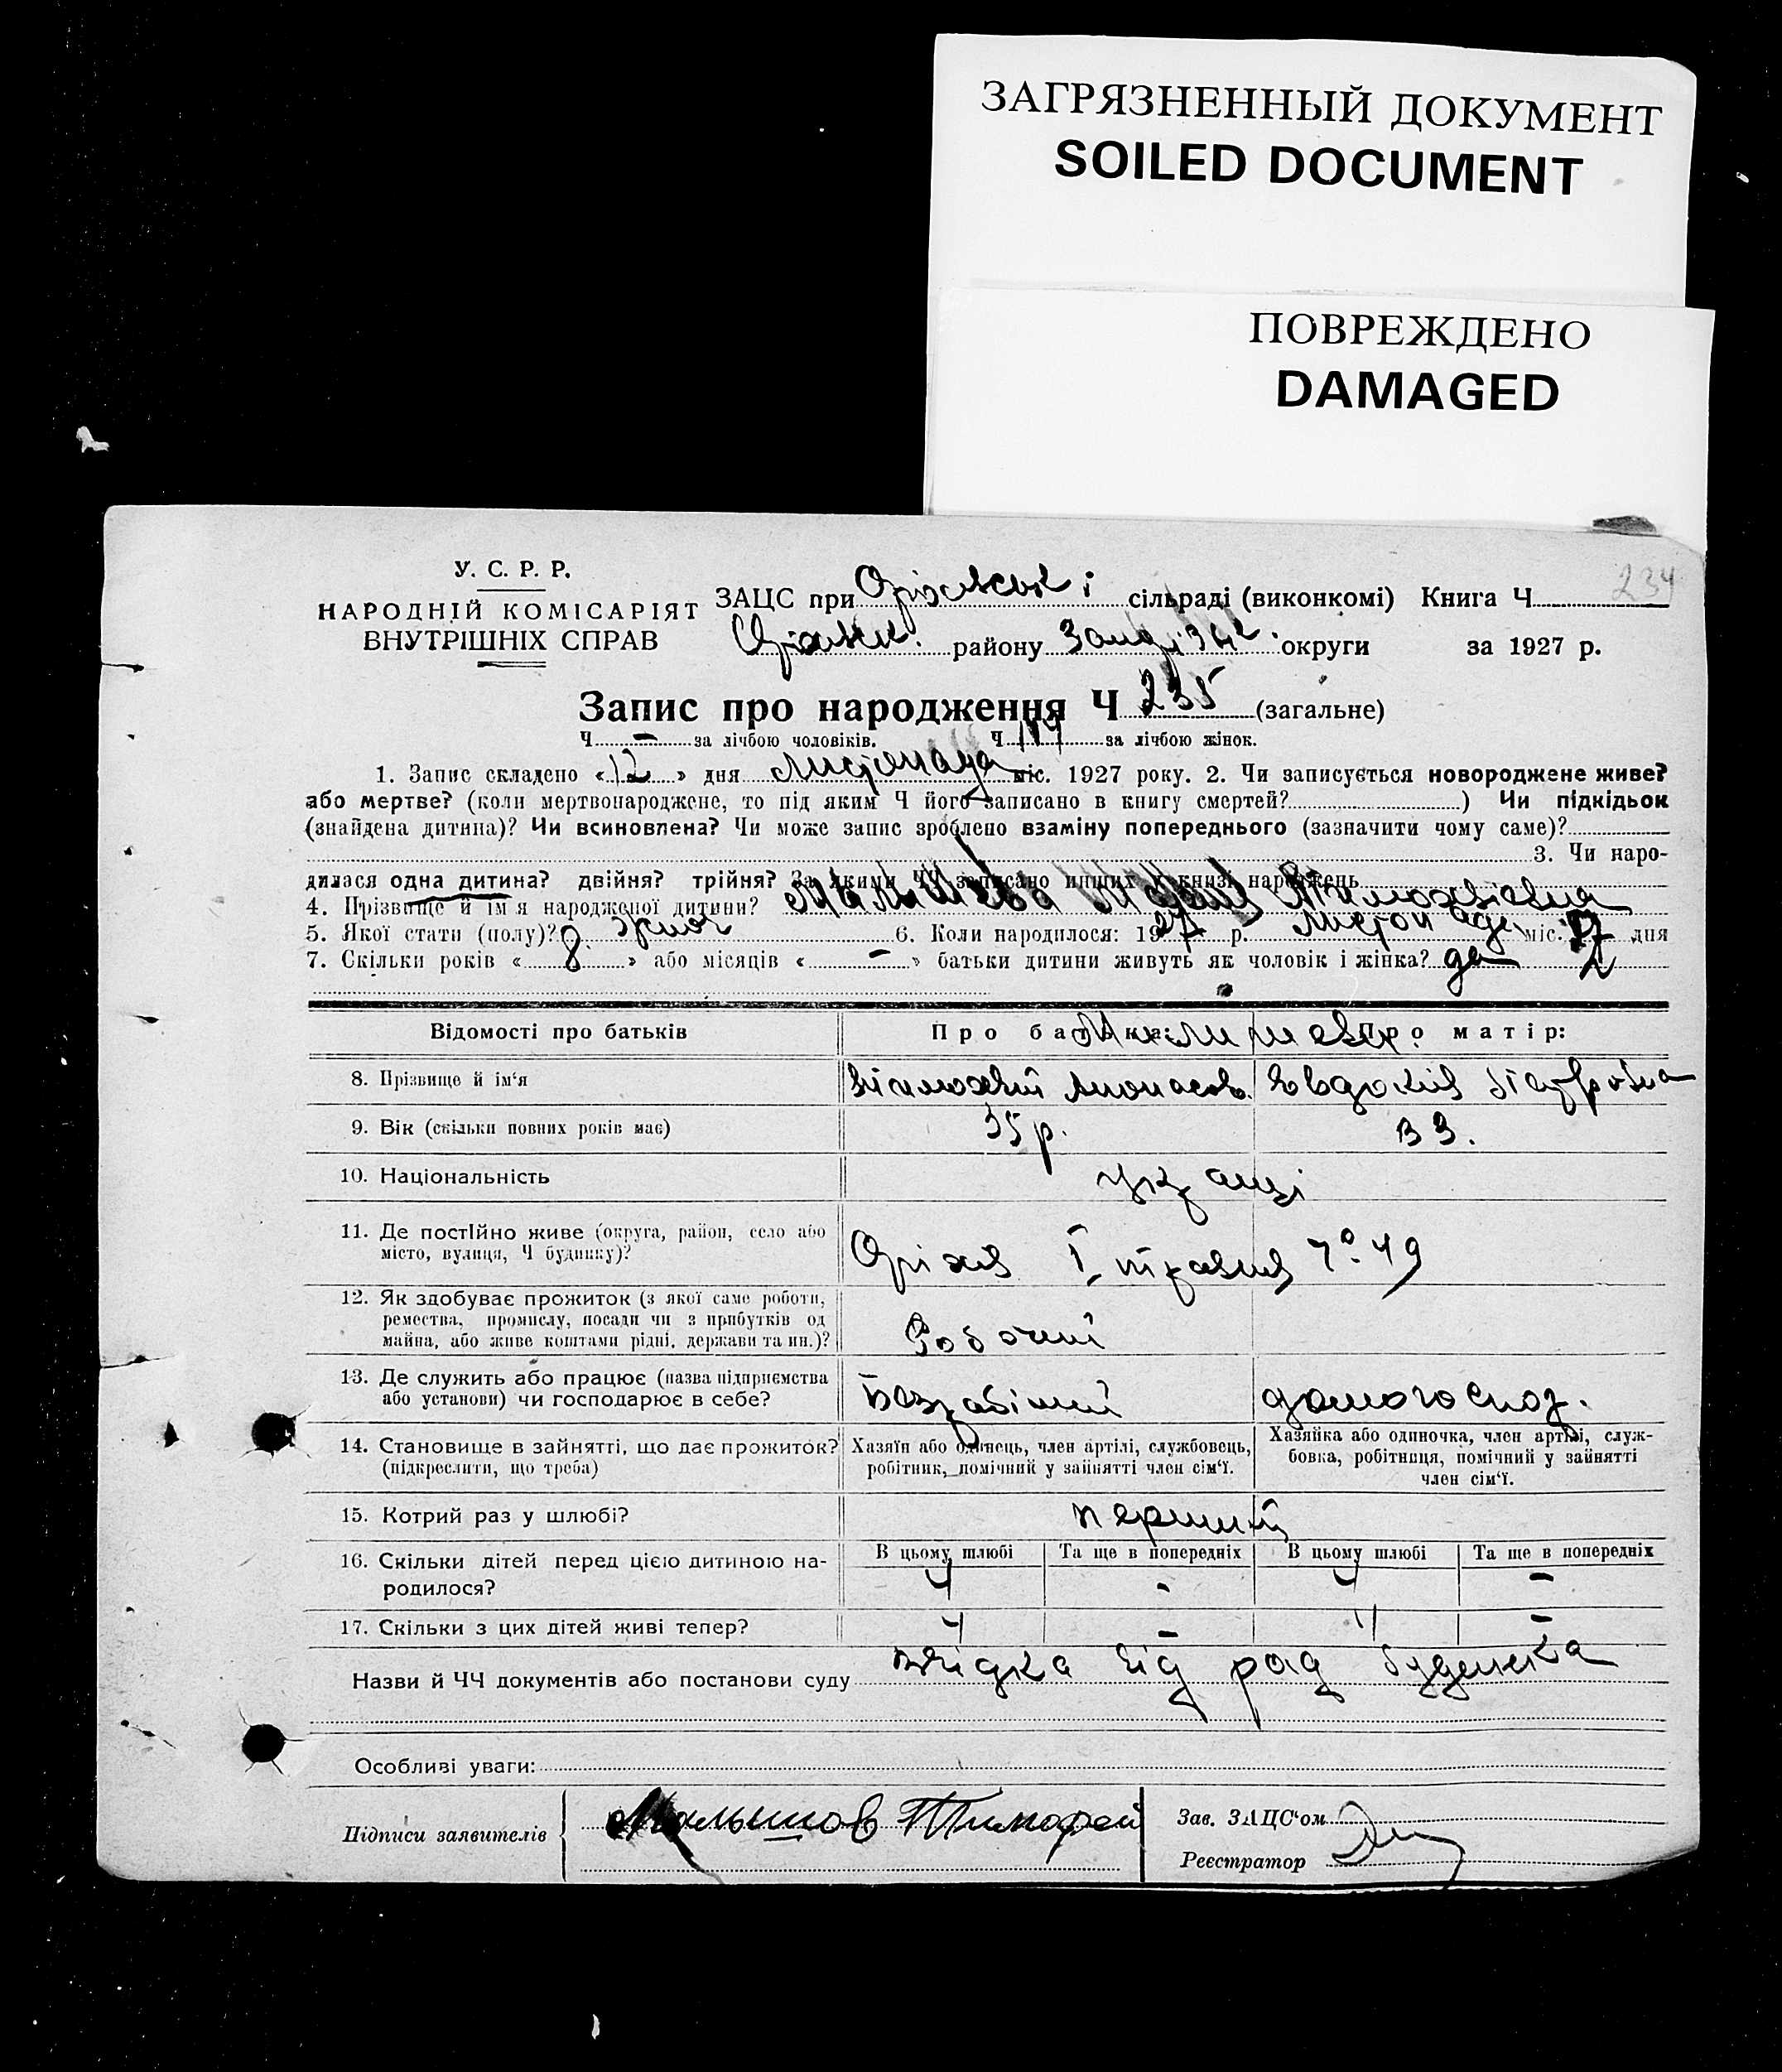 ЗАГРЯЗНЕННЫЙ ДОКУМЕНТ
SOILED DOCUMENT
ПОВРЕЖДЕНО
DAMAGED
234
У. С. Р. Р.
НАРОДНІЙ КОМІСАРІЯТ
ВНУТРІШНІХ СПРАВ
ЗАЦС при Оріхівськ і сільраді (виконкомі) Книга Ч
Оріхівск. району Запоріжк. округи за 1927 р.
Запис про народження Ч 235 (загальне)
Ч — за лічбою чоловіків. Ч 119 за лічбою жінок.
1. Запис складено «12» дня листопада міс. 1927 року. 2. Чи записується новороджене живе?
або мертве? (коли мертвонароджене, то під яким Ч його записано в книгу смертей? ) Чи підкідьок
(знайдена дитина)? Чи всиновлена? Чи може запис зроблено взаміну попереднього (зазначити чому саме)?
3. Чи наро-
дилася одна дитина? двійня? трійня? За якими ЧЧ записано инших у книзі народжень
4. Прізвище й ім'я народженої дитини? Малишева Марія Тимохвіївна
5. Якої стати (полу)? жіноч 6. Коли народилося: 1927 р. листопаду міс. 7 дня
7. Скільки років «8» або місяців «—» батьки дитини живуть як чоловік і жінка? да 7
Відомості про батьків
Про батька: Про матір:
Малишеви
8. Прізвище й ім'я
Тимохвій Опонасов. Євдокія Петровна
9. Вік (скільки повних років має)
35 р. 33.
10. Національність
українці
11. Де постійно живе (округа, район, село або
місто, вулиця, Ч будинку)?
Оріхів 1 травня № 49
12. Як здобуває прожиток (з якої саме роботи,
ремества, промислу, посади чи з прибутків од
майна, або живе коштами рідні, держави та ин.)?
Робочий
13. Де служить або працює (назва підприємства
або установи) чи господарює в себе?
Безробітний домогоспод.
14. Становище в зайнятті, що дає прожиток?
(підкреслити, що треба)
Хазяїн або одинець, член артілі, службовець,
робітник, помічний у зайнятті член сім'ї.
Хазяйка або одиночка, член артілі, служ-
бовка, робітниця, помічний у зайнятті
член сім'ї.
15. Котрий раз у шлюбі?
перший
16. Скільки дітей перед цією дитиною на-
родилося?
В цьому шлюбі Та ще в попередніх В цьому шлюбі Та ще в попередніх
4 - 4 -
17. Скільки з цих дітей живі тепер?
4 - 4 -
Назви й ЧЧ документів або постанови суду від род будинка
Особливі уваги:
Підписи заявителів
Малышов Тимофей
Зав. ЗАЦС'ом
Реєстратор